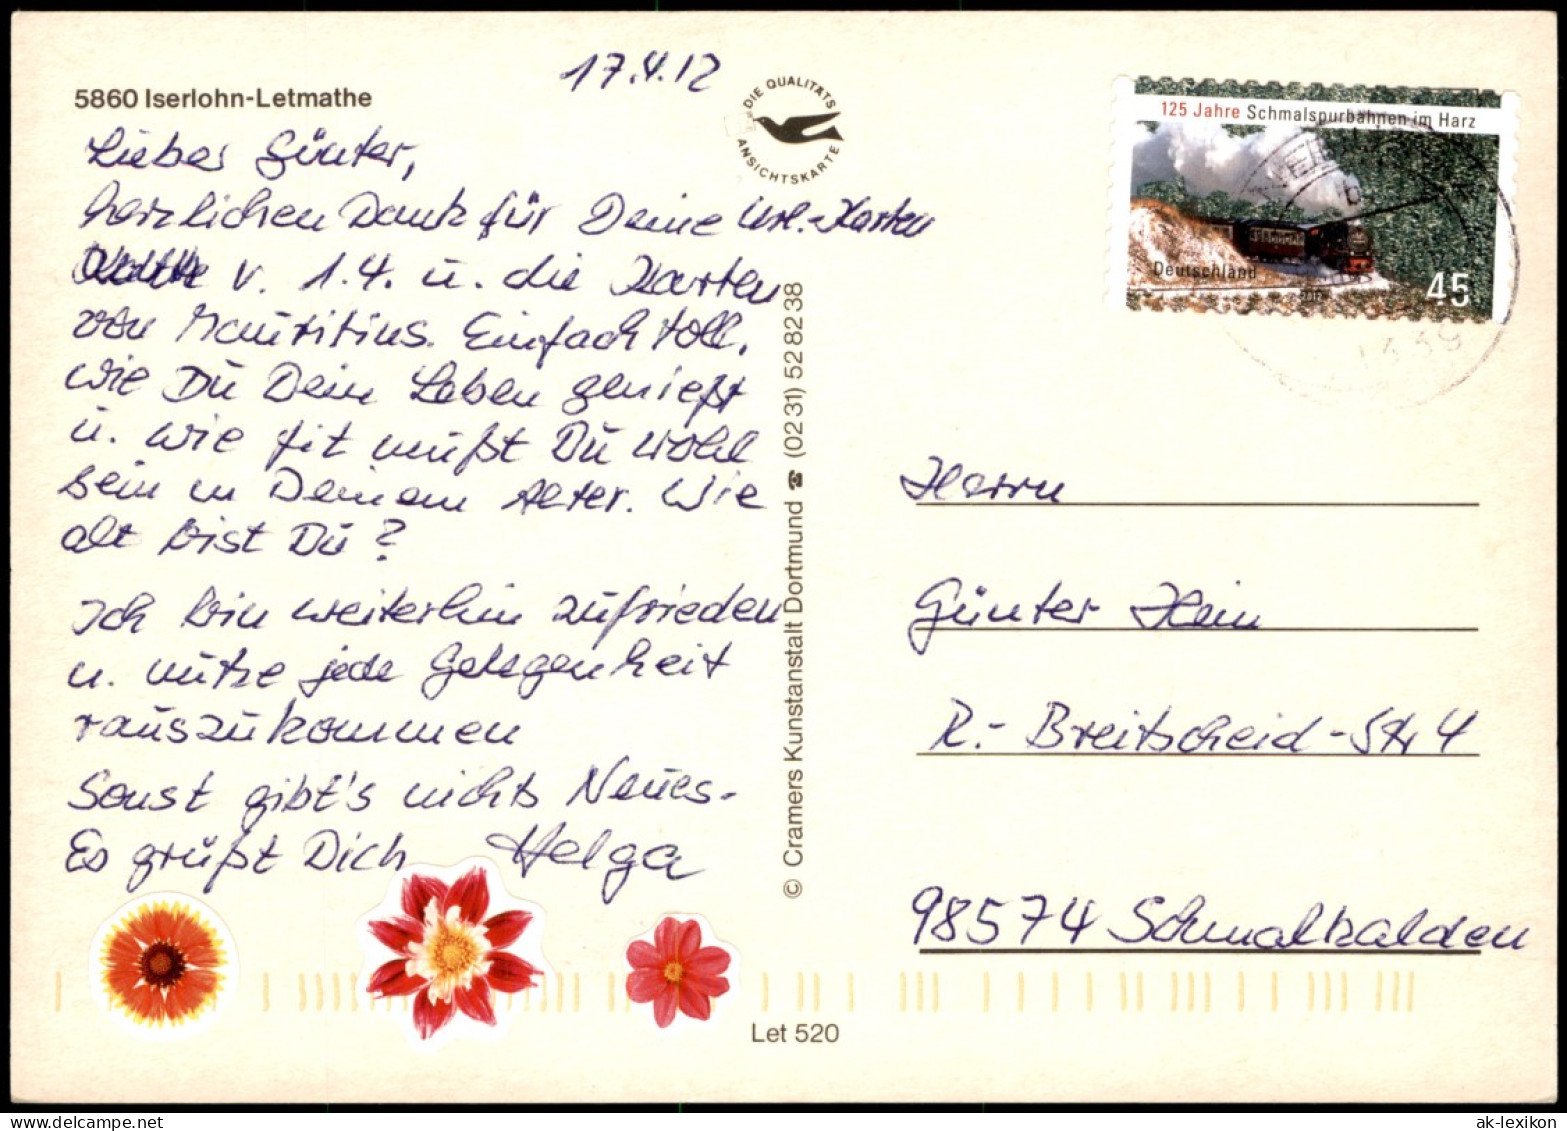 5860 Iserlohn-Letmathe
17.4.12
DIE QUALITÄTS
ANSICHTSKARTE
125 Jahre Schmalspurbahnen im Harz
Deutschland
2012
45
Lieber Günter,
herzlichen Dank für Deine Url.-Karten
v. 1.4. u. die Karten
von Mauritius. Einfach toll,
wie Du Dein Leben genießt
u. wie fit mußt Du wohl
sein in Deinem Alter. Wie
alt bist Du?
Ich bin weiterhin zufrieden
u. nutze jede Gelegenheit
rauszukommen
Sonst gibt's nichts Neues.
Es grüßt Dich Helga
© Cramers Kunstanstalt Dortmund ☎ (0231) 528238
Herrn
Günter Hein
R.-Breitscheid-Str 4
98574 Schmalkalden
Let 520
ak-lexikon